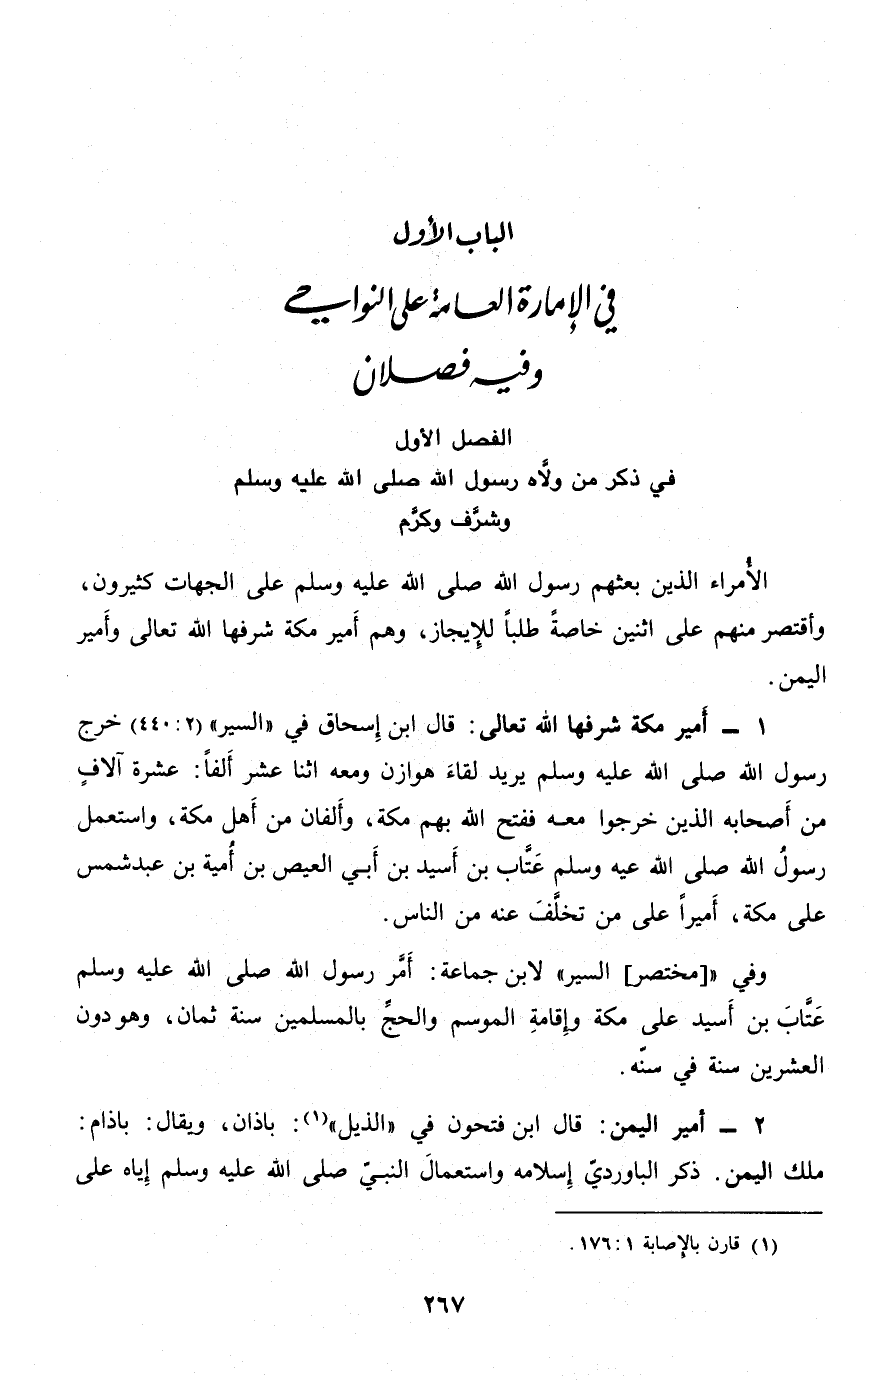 الباب الأول
في الإمارة العامة على النواحي
وفيه فصلان
الفصل الأول
في ذكر من ولَّاه رسول الله صلى الله عليه وسلم
وشرَّف وكرَّم
الأُمراء الذين بعثهم رسول الله صلى الله عليه وسلم على الجهات كثيرون،
وأقتصر منهم على اثنين خاصةً طلباً للإيجاز، وهم أَمير مكة شرفها الله تعالى وأَمير
اليمن.
١ ــ أَمير مكة شرفها الله تعالى: قال ابن إِسحاق في «السير» (٢: ٤٤٠) خرج
رسول الله صلى الله عليه وسلم يريد لقاءَ هوازن ومعه اثنا عشر أَلفاً: عشرة آلافٍ
من أَصحابه الذين خرجوا معه ففتح الله بهم مكة، وأَلفان من أَهل مكة، واستعمل
رسولُ الله صلى الله عيه وسلم عَتَّاب بن أَسيد بن أَبي العيص بن أُمية بن عبدشمس
على مكة، أَميراً على من تخلَّفَ عنه من الناس.
وفي «[مختصر] السير» لابن جماعة: أَمَّر رسول الله صلى الله عليه وسلم
عَتَّابَ بن أَسيد على مكة وإِقامةِ الموسم والحجِّ بالمسلمين سنة ثمان، وهو دون
العشرين سنة في سنّه.
٢ ــ أمير اليمن: قال ابن فتحون في «الذيل»(١): باذان، ويقال: باذام:
ملك اليمن. ذكر الباورديّ إِسلامه واستعمالَ النبيّ صلى الله عليه وسلم إِياه على
(١) قارن بالإِصابة ١: ١٧٦.
٢٦٧